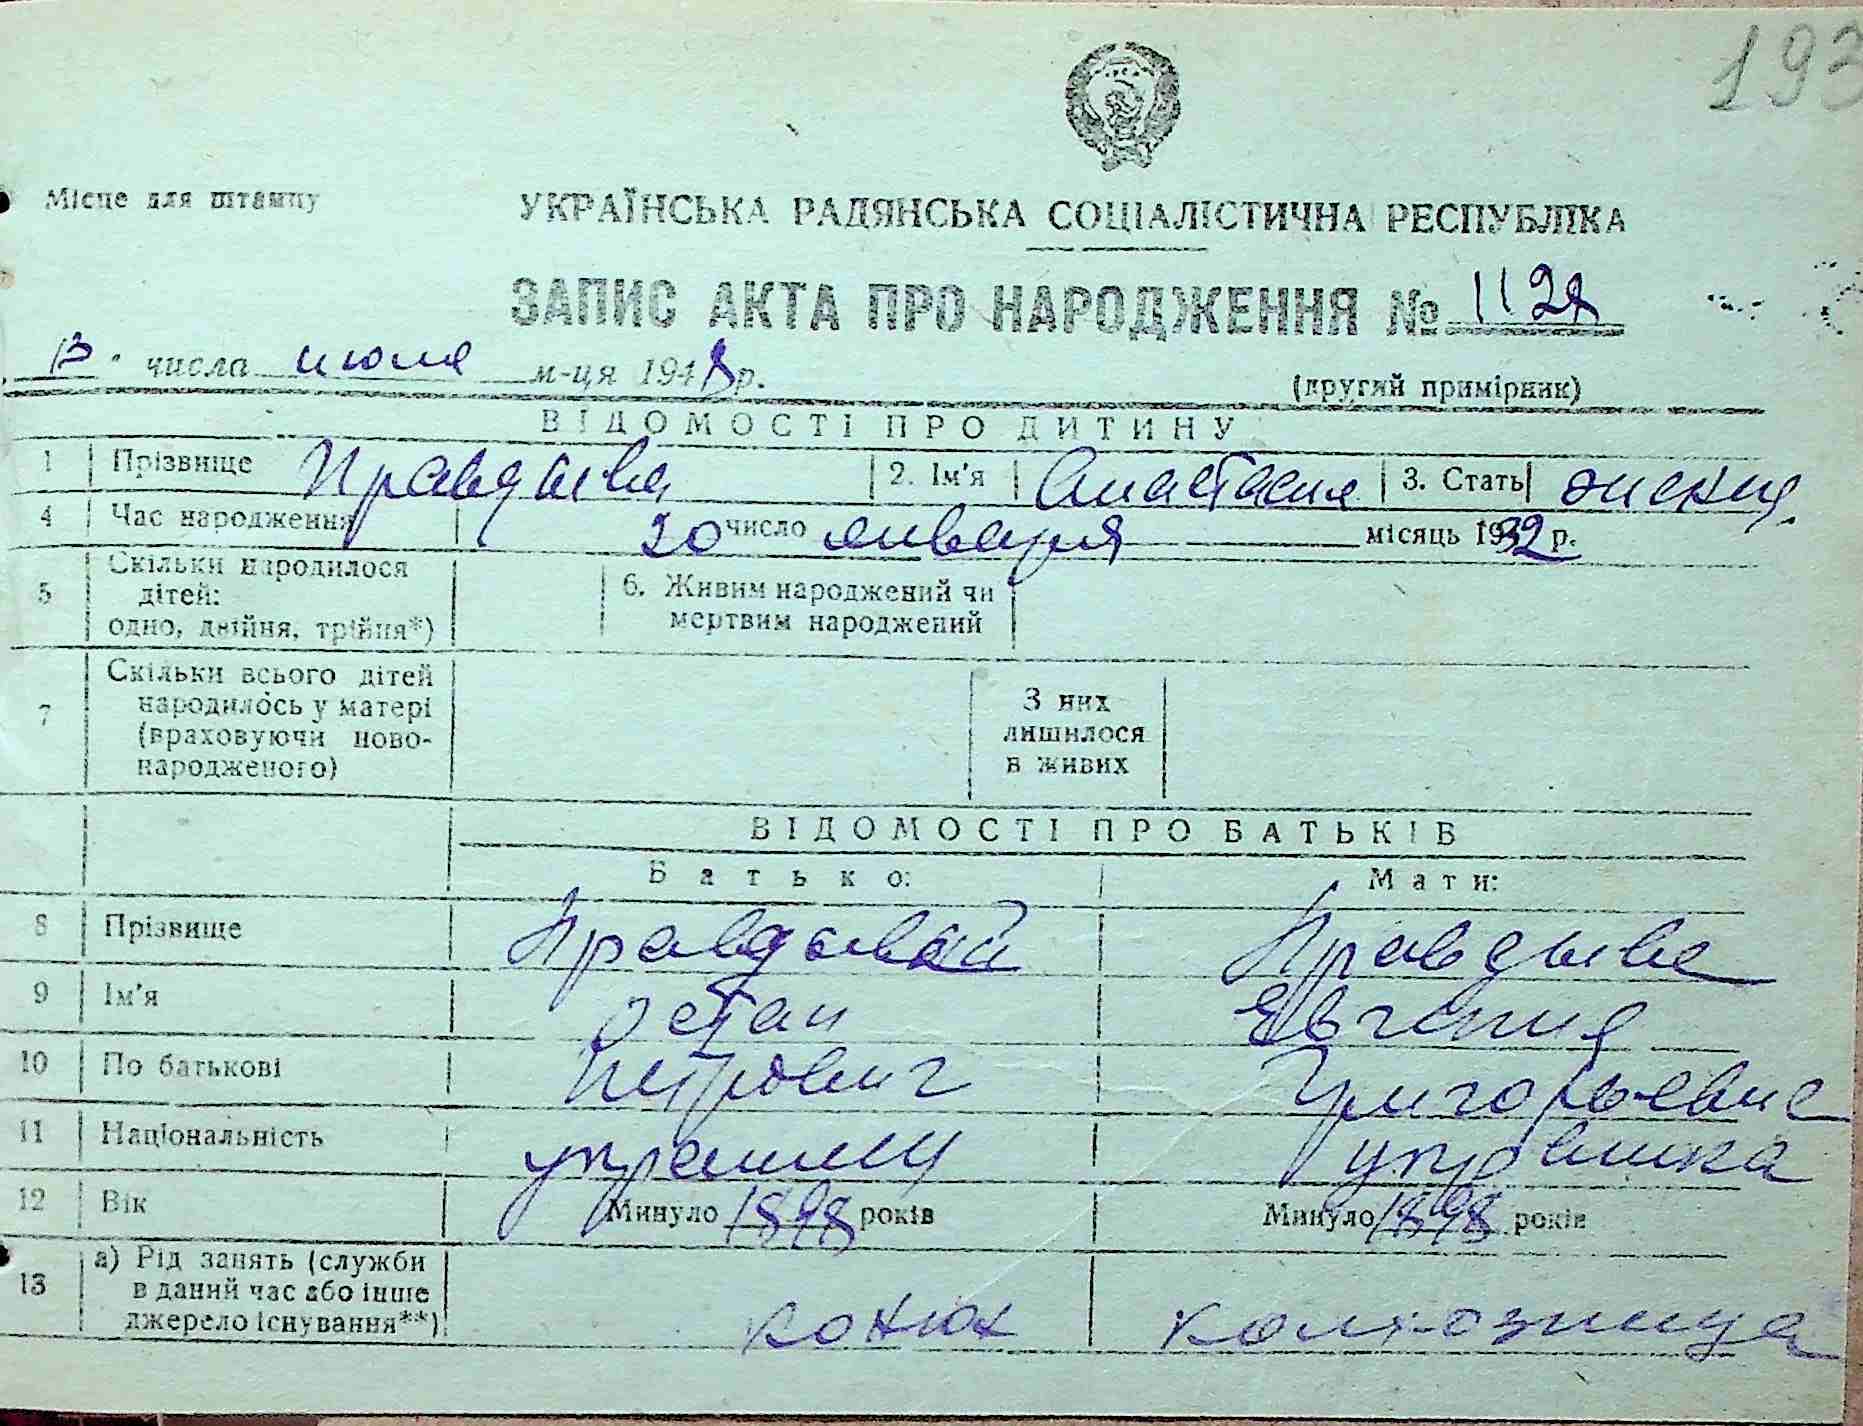 193
Місце для штампу
УКРАЇНСЬКА РАДЯНСЬКА СОЦІАЛІСТИЧНА РЕСПУБЛІКА
ЗАПИС АКТА ПРО НАРОДЖЕННЯ № 1128
13 числа июля м-ця 1948 р.
(другий примірник)
ВІДОМОСТІ ПРО ДИТИНУ
1 Прізвище Правдыва 2. Ім'я Анастасия 3. Стать женщ.
4 Час народження 20 число января місяць 1932 р.
5 Скільки народилося дітей: одно, двійня, трійня*) 6. Живим народжений чи мертвим народжений
7 Скільки всього дітей народилось у матері (враховуючи ново-народженого) З них лишилося в живих
ВІДОМОСТІ ПРО БАТЬКІВ
Батько: Мати:
8 Прізвище Правдывый Правдыва
9 Ім'я Остап Явгения
10 По батькові Петрович Григорьевна
11 Національність украинец украинка
12 Вік Минуло 1898 років Минуло 1898 років
13 а) Рід занять (служби в даний час або інше джерело існування**) конюх колхозница